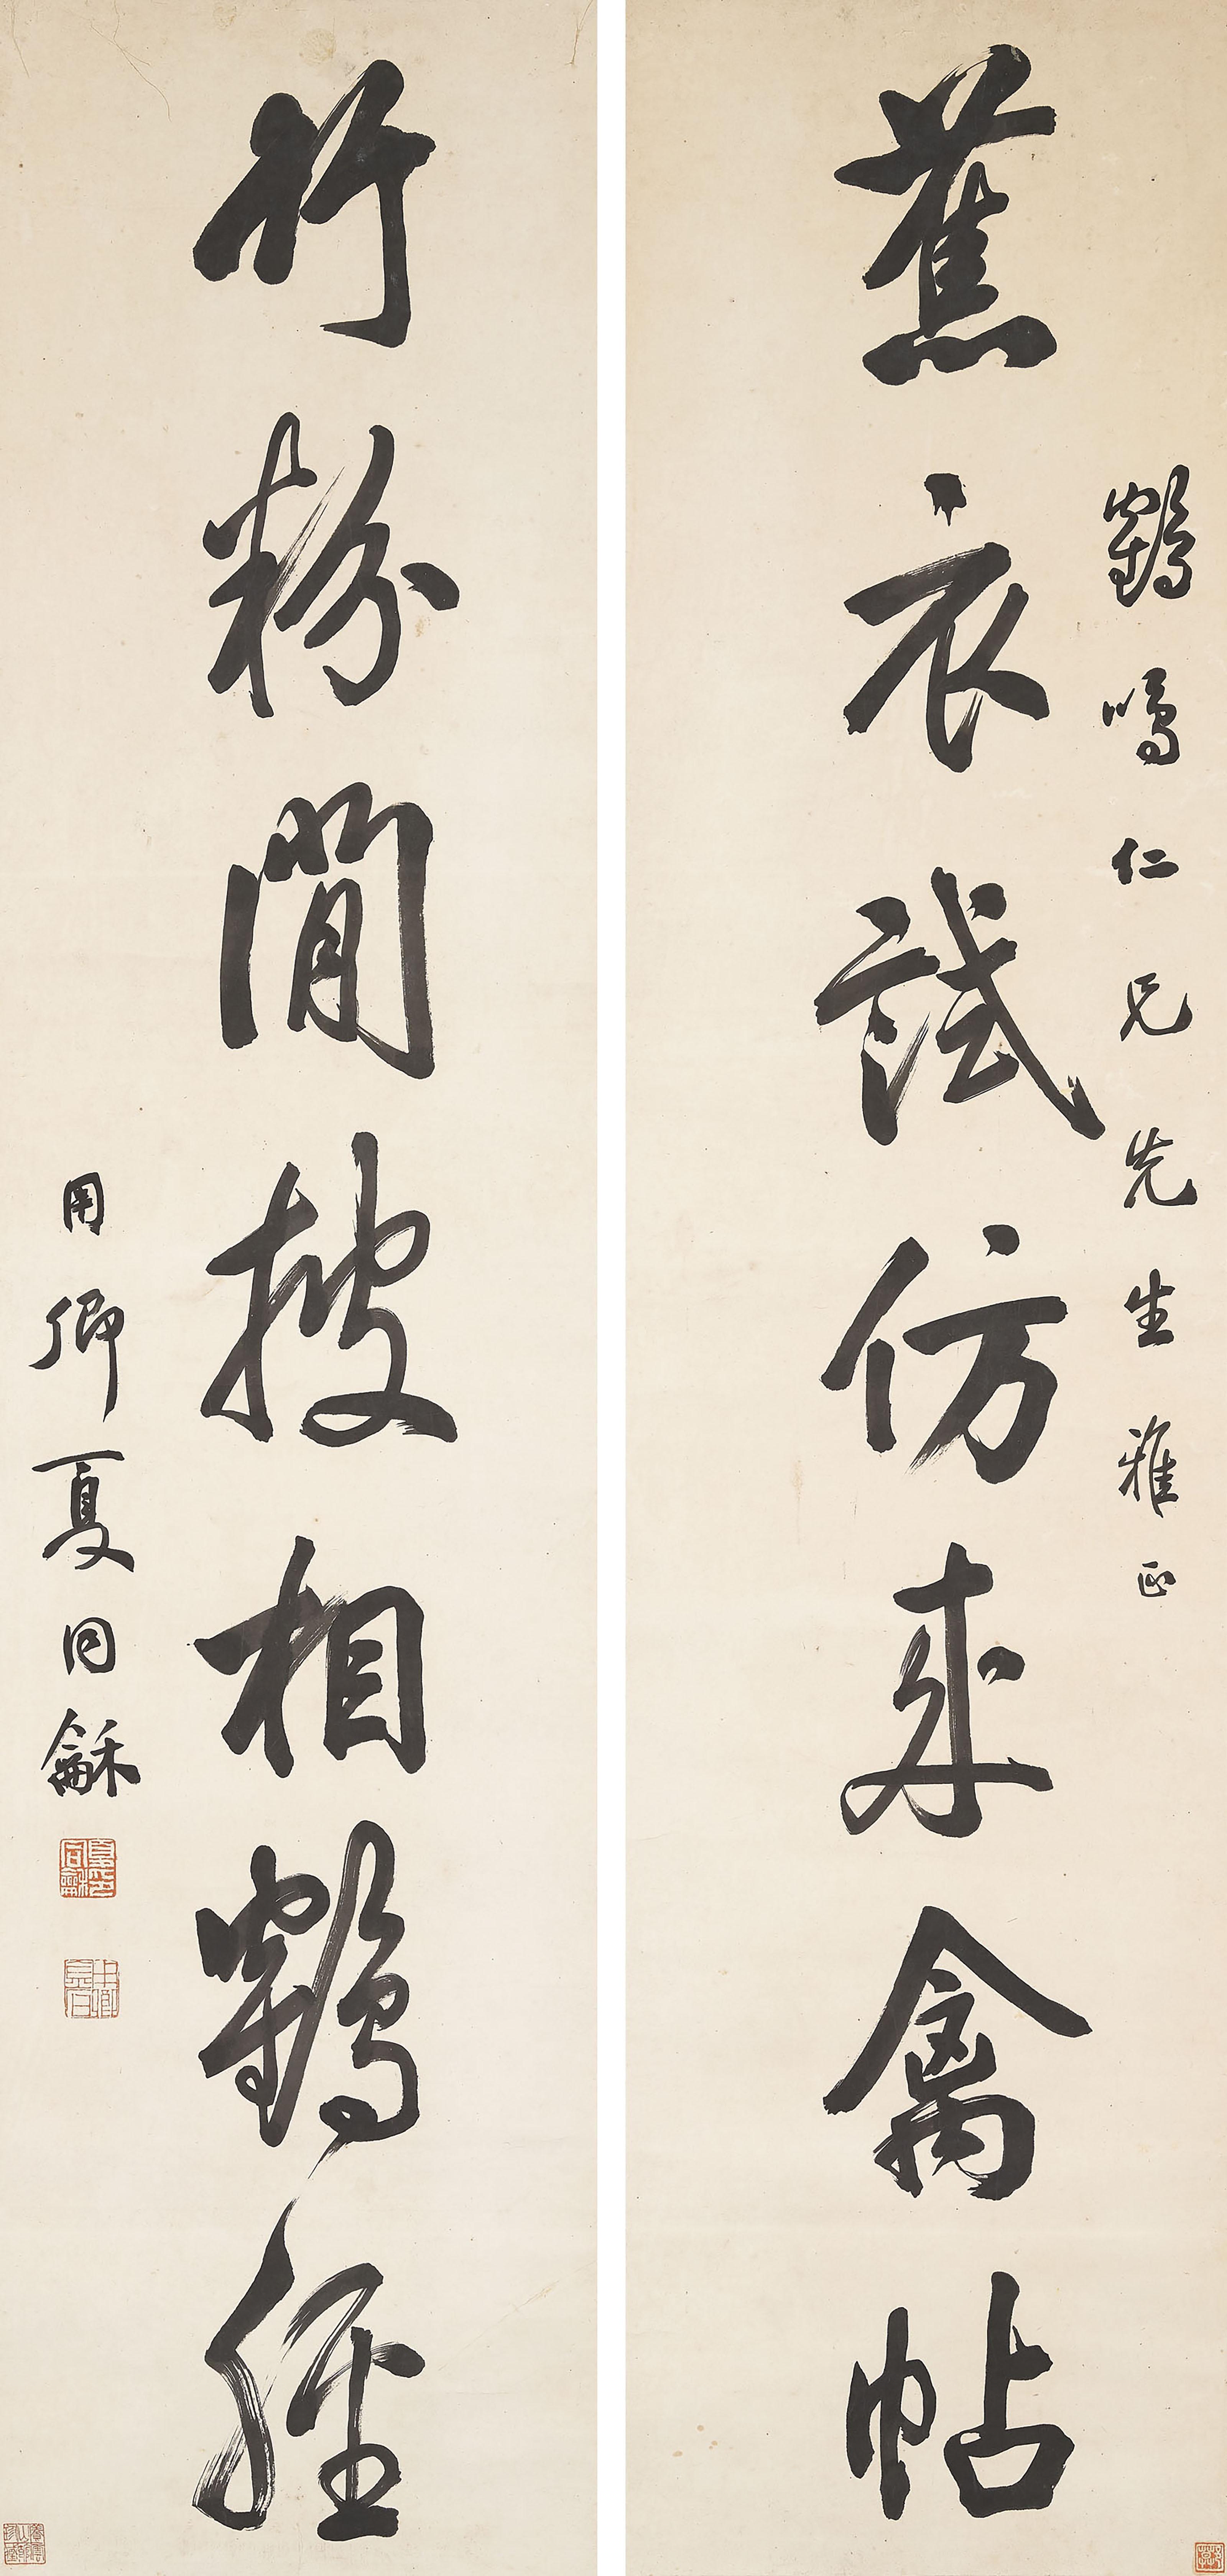 鶴鳴仁兄先生雅正
蕉衣試仿來禽帖
竹粉閒披相鶴經
用卿夏同龢
夏同龢印